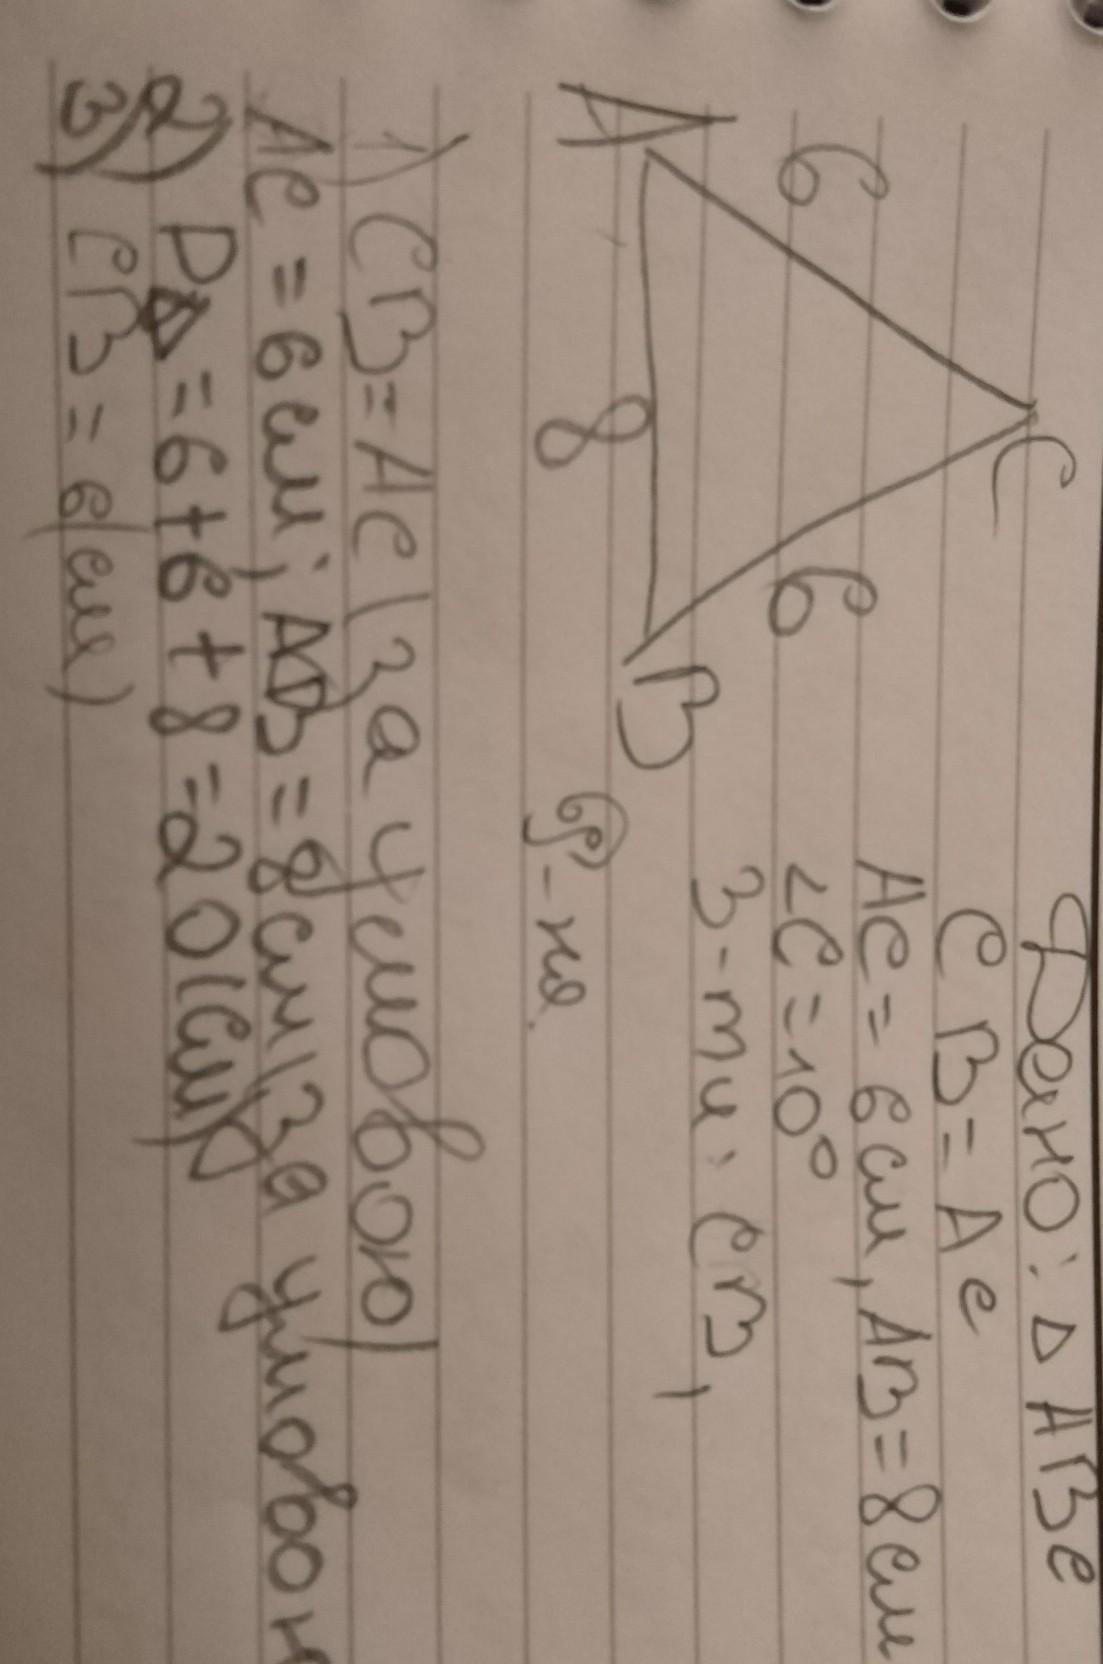 Дано: Δ ABC
CB = AC
AC = 6 см, AB = 8 см
∠C = 10°
З-ти: CB,
A
6
C
6
B
8
Р-ня.
1) CB = AC (За умовою)
AC = 6 см; AB = 8 см (За умовою
2) PΔ = 6 + 6 + 8 = 20 (см)
3) CB = 6 (см)